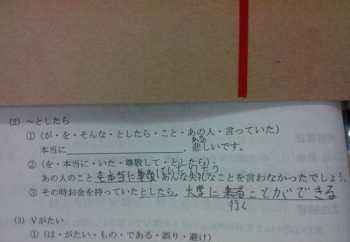 (2) ～としたら
① (が・を・そんな・としたら・こと・あの人・言っていた)
ある
本当に 悲しいです。
② (を・本当に・いた・尊敬して・としたら)
あの人のこと を本当に尊敬していたとしたら あんな失礼なことを言わなかったでしょう。
③ その時お金を持っていたとしたら、大学に来ることができる
行く
(3) Vがたい
① (は・がたい・もの・である・誤り・避け)